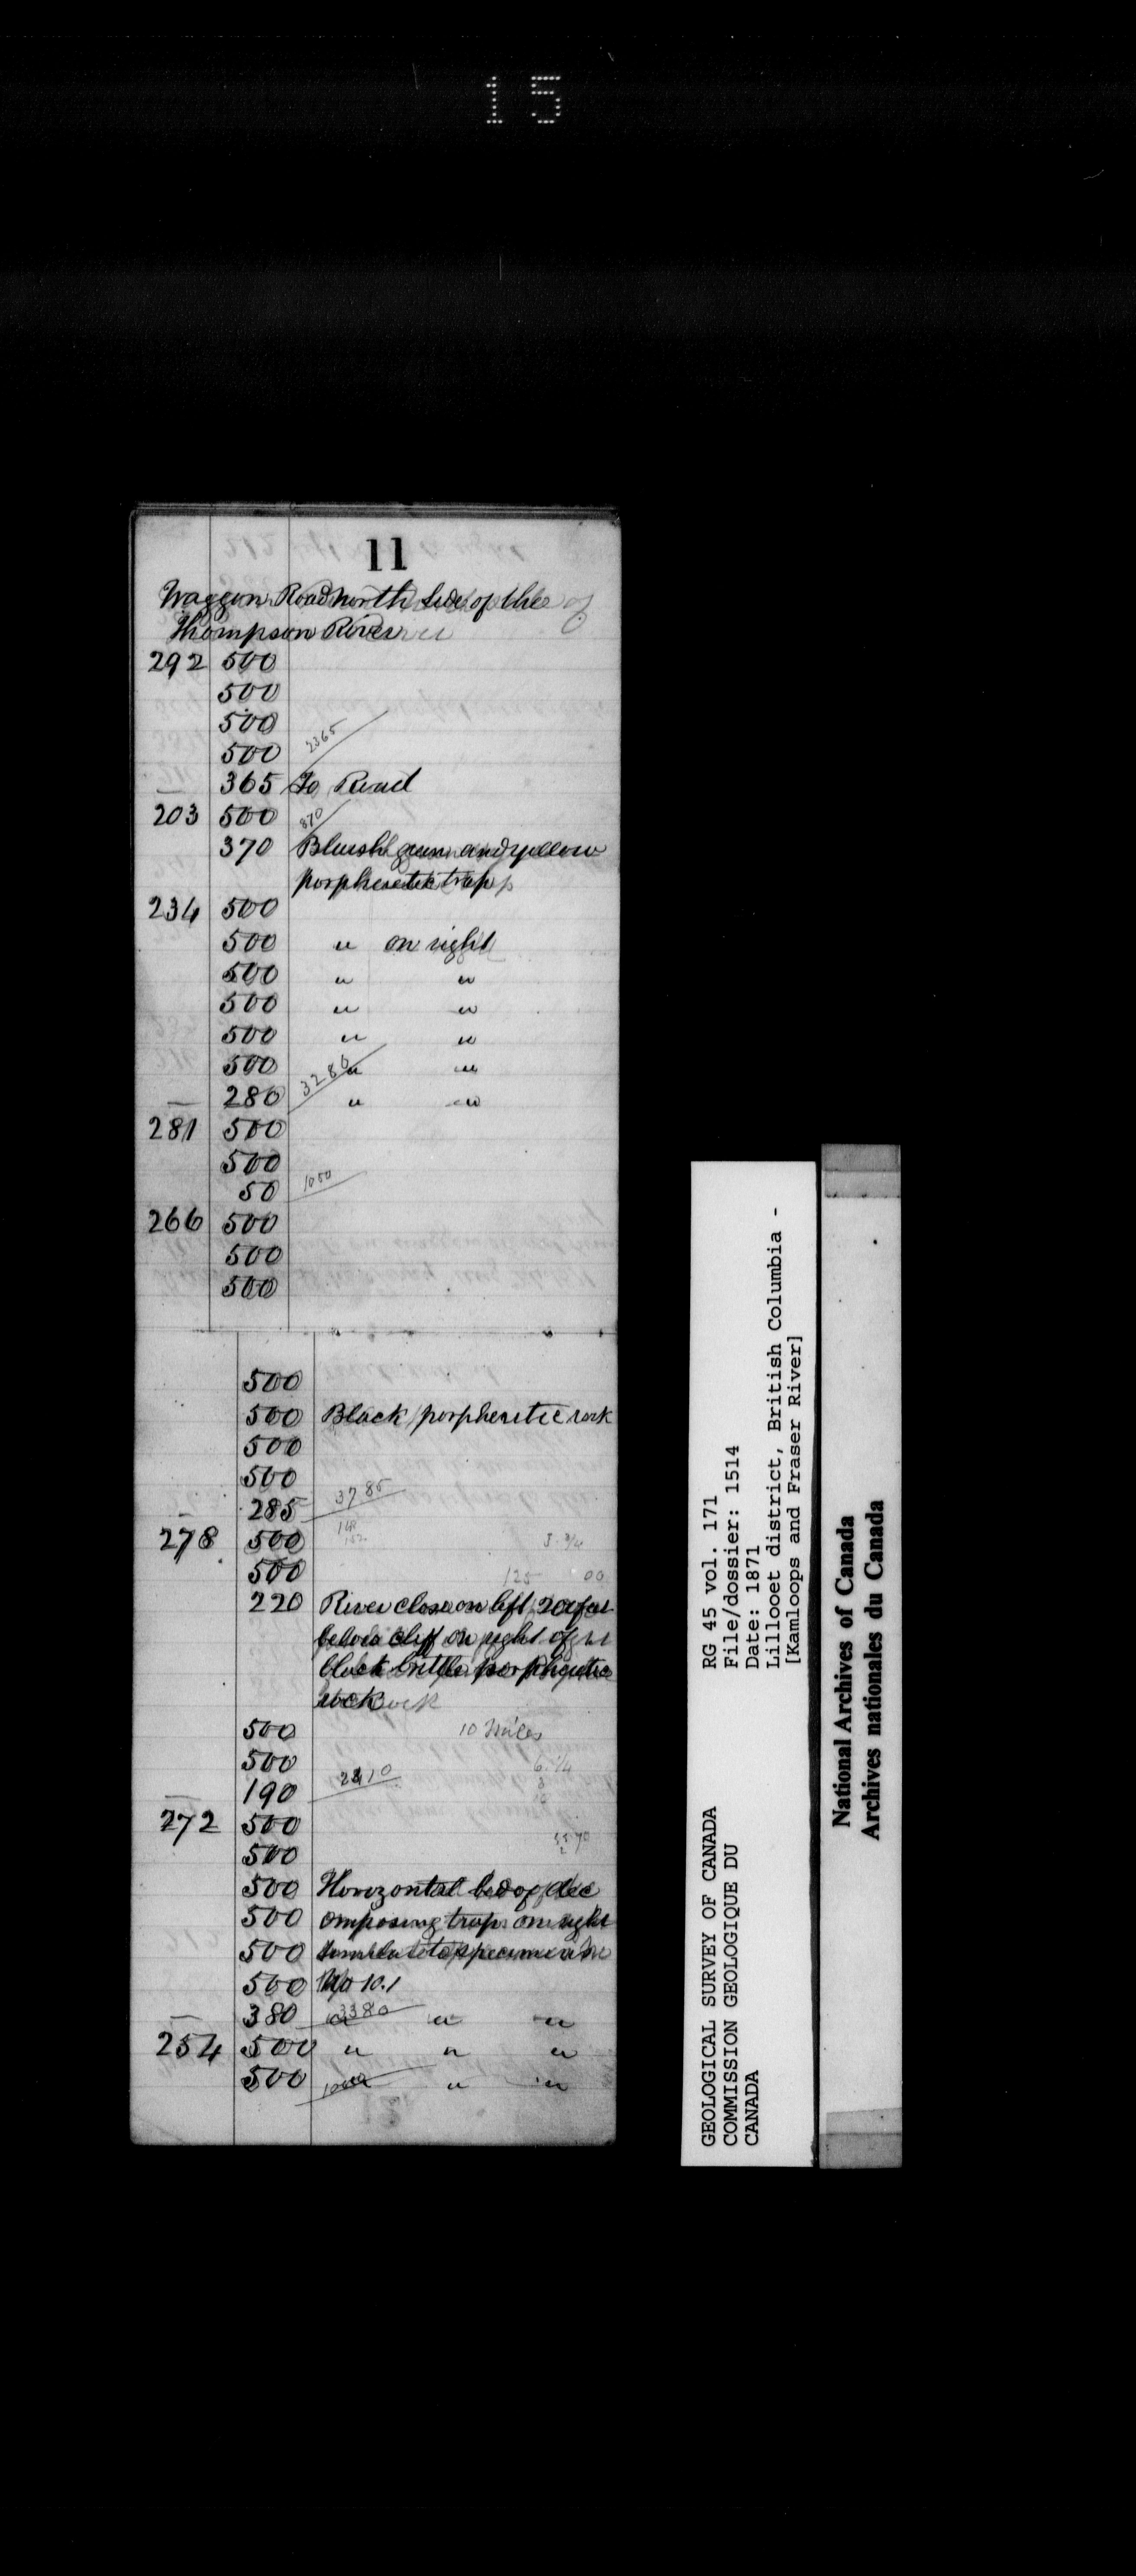 15
11
Waggon Road north side of the
Thompson River
292 500
500
500
500 2365
365 To Road
203 500 870
370 Bluish green and yellow
porpheretic trap
234 500
500 " on right
500 " "
500 " "
500 " "
500 3280 " "
280 " "
281 500
500
50 1050
266 500
500
500
500
500 Black porpheritic rock
500
500
285 3785
278 500
500 125 00
220 River close on left 20 feet
below cliff on right of
black brittle porpheritic
rock
500 10 miles
500 6 1/4
190 2210
272 500
500
500 Horizontal bed of dec
500 omposing trap on right
500 similar to specimen in
500 No 10.1
380 3380 " " "
254 500 " " "
500 1000 " " "
GEOLOGICAL SURVEY OF CANADA
COMMISSION GEOLOGIQUE DU
CANADA
RG 45 vol. 171
File/dossier: 1514
Date: 1871
Lillooet district, British Columbia -
[Kamloops and Fraser River]
National Archives of Canada
Archives nationales du Canada